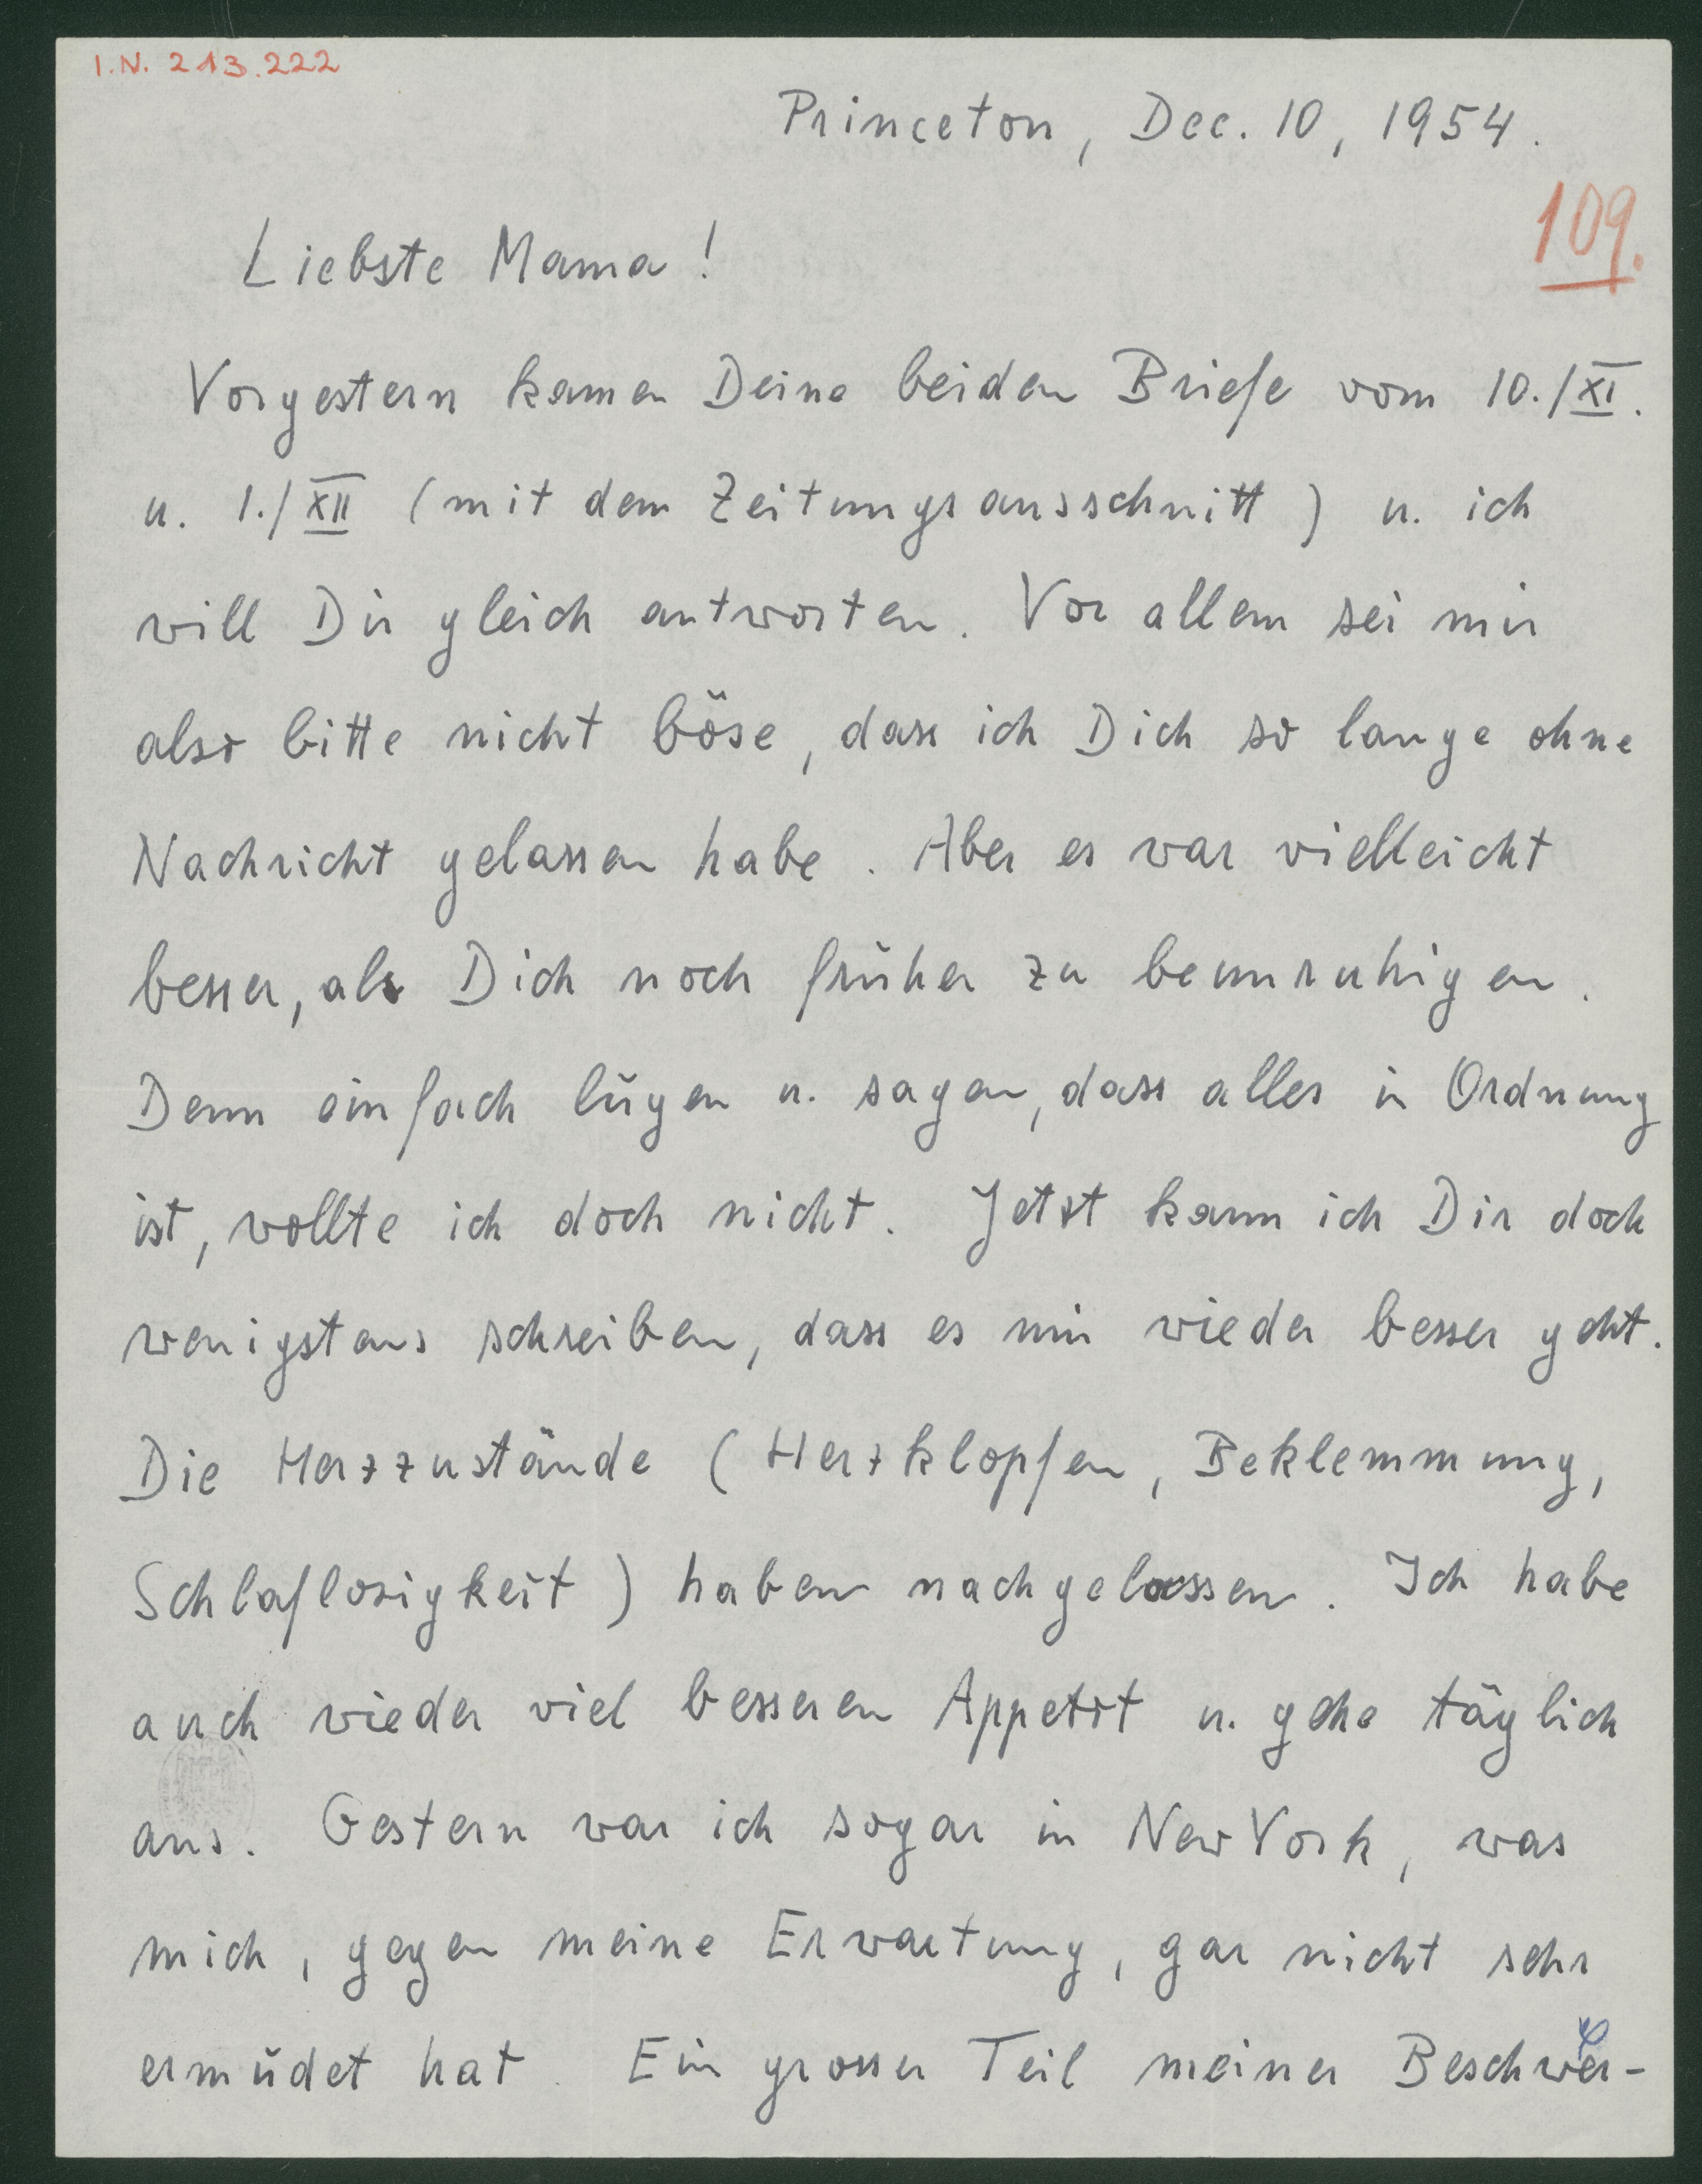 I.N. 213.222
Princeton, Dec. 10, 1954.
109.
Liebste Mama!
Vorgestern kamen Deine beiden Briefe vom 10./XI.
u. 1./XII (mit dem Zeitungsausschnitt) u. ich
will Dir gleich antworten. Vor allem sei mir
also bitte nicht böse, dass ich Dich so lange ohne
Nachricht gelassen habe. Aber es war vielleicht
besser, als Dich noch früher zu beunruhigen.
Denn einfach lügen u. sagen, dass alles in Ordnung
ist, wollte ich doch nicht. Jetzt kann ich Dir doch
wenigstens schreiben, dass es mir wieder besser geht.
Die Herzzustände (Herzklopfen, Beklemmung,
Schlaflosigkeit) haben nachgelassen. Ich habe
auch wieder viel besseren Appetit u. gehe täglich
aus. Gestern war ich sogar in New York, was
mich, gegen meine Erwartung, gar nicht sehr
ermüdet hat. Ein grosser Teil meiner Beschwer-